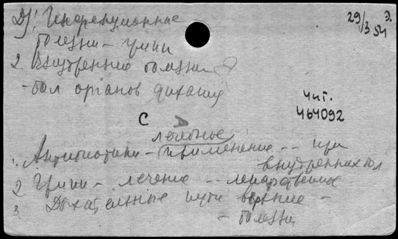 Д) 1. Инфекционные
болезни - грипп
29/3 54 э.
2. Внутренние болезни
- бол органов дыхания
чит.
464092
С А
лечебное
1. Антибиотики - применение -- при
внутренних бол
2 Грипп - лечение -- лекарственное
3 Дыхательные пути верхние -
- болезни